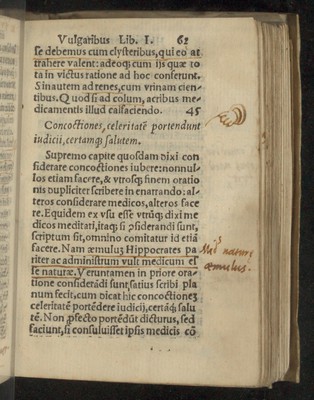 Vulgaribus Lib. I. 62
se debemus cum clysteribus, qui eo at
trahere valent: adeoq; cum ijs quæ to
ta in victus ratione ad hoc conferunt.
Sin autem ad renes, cum vrinam cien-
tibus. Quod si ad colum, acribus me-
dicamentis illud calfaciendo. 45
Concoctiones, celeritatē portendunt
iudicij, certamq; salutem.
Supremo capite quosdam dixi con
siderare concoctiones iubere: nonnul-
los etiam facere, & vtrosq; finem oratio-
nis dupliciter scribere in enarrando: al-
teros considerare medicos, alteros face
re. Equidem ex vsu esse vtrūq; dixi me
dicos meditati, itaq; si ꝓsiderandi sunt,
scriptum sit, omnino comitatur id etiā
facere. Nam æmulus Hippocrates pa
riter ac administrum vult medicum es
se naturæ. Veruntamen in priore ora-
tione considerādi sunt, satius scribi pla
num fecit, cum dicat hic concoctiones
celeritatē portēdere iudicij, certāq; salu
tē. Non ꝓfecto portēdūt dicturus, sed
faciunt, si consuluisset ipsis medicis cō
Med. naturæ
æmulus.